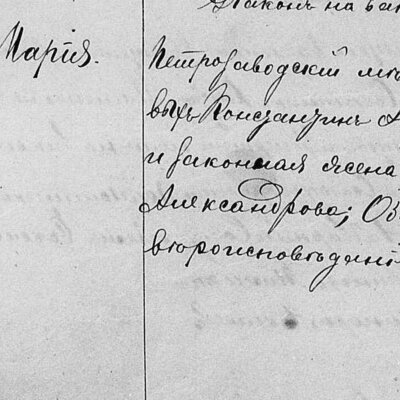 Законъ на вак
Марія.
Петрозаводскій мѣ
выхъ Константинъ А
и законная жена
Александрова; Об
второисповѣдані